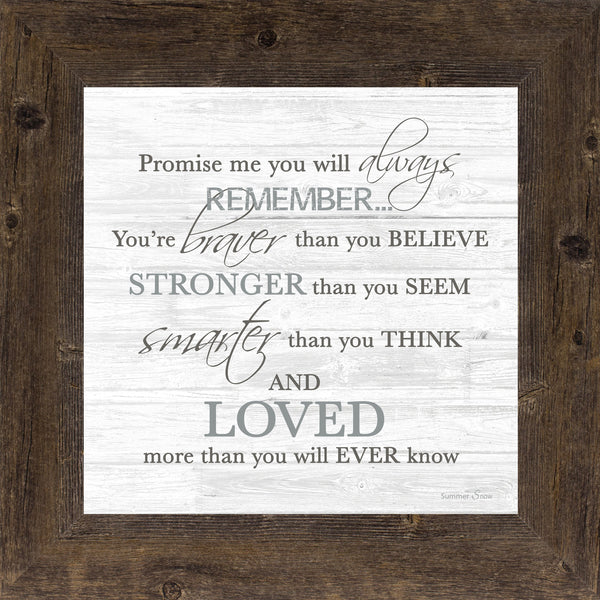 Promise me you will always
REMEMBER...
You're braver than you BELIEVE
STRONGER than you SEEM
smarter than you THINK
AND
LOVED
more than you will EVER know
Summer Snow